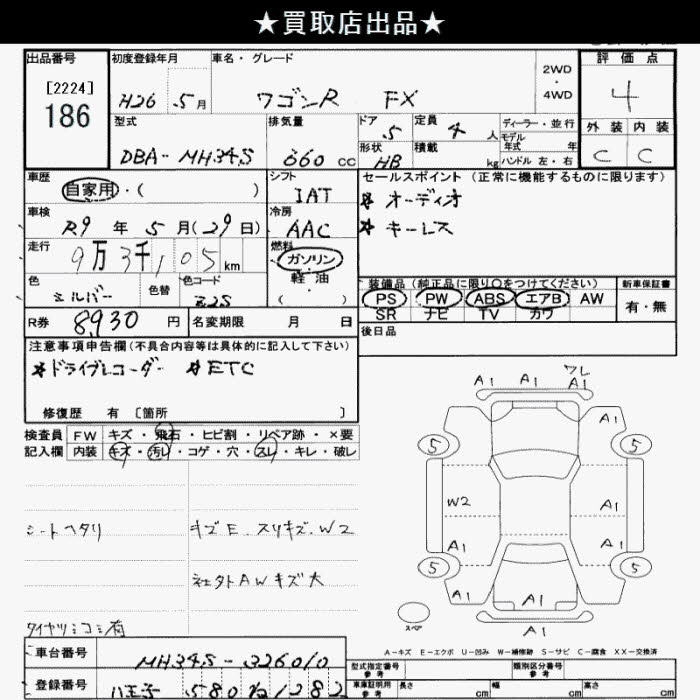 ★買取店出品★
出品番号 初度登録年月 車名・グレード 2WD・4WD 評価点
[2224]
186
H26 5月 ワゴンR FX 4
型式 排気量 ドア 定員 ディーラー・並行 外装 内装
DBA-MH34S 660cc 5 4人 モデル年式 年 C C
形状 HB 積載 kg ハンドル 左・右
車歴 シフト セールスポイント (正常に機能するものに限ります)
自家用・( ) IAT ★オーディオ
車検 冷房 ★キーレス
R9年5月(29日) AAC
走行 燃料
9万3千105km ガソリン
軽油
( )
色 色替 色コード 装備品 (純正品に限り○をつけてください) 新車保証書
シルバー Z2S PS PW ABS エアB AW 有・無
SR ナビ TV カワ
R券 8930円 名変期限 月 日 後日品
注意事項申告欄(不具合内容等は具体的に記入して下さい)
★ドライブレコーダー ★ETC
修復歴 有 [箇所 ]
検査員 FW キズ・飛石・ヒビ割・リペア跡・×要
記入欄 内装 キズ・汚レ・コゲ・穴・スレ・キレ・破レ
シートヘタリ キズE.スリキズ.W2
社外AWキズ大
タイヤツミコミ有
A1 A1 ワレ A1
5 A1 5
W2 A1
A1 A1
5 5
A1
A1
スペア
A-キズ E-エクボ U-凹み W-補修跡 S-サビ C-腐食 XX-交換済
車台番号 MH34S-326010
登録番号 八王子 580 ね 1282
型式指定番号 参考 類別区分番号 参考
車庫証明用 参考 長さ cm 幅 cm 高さ cm